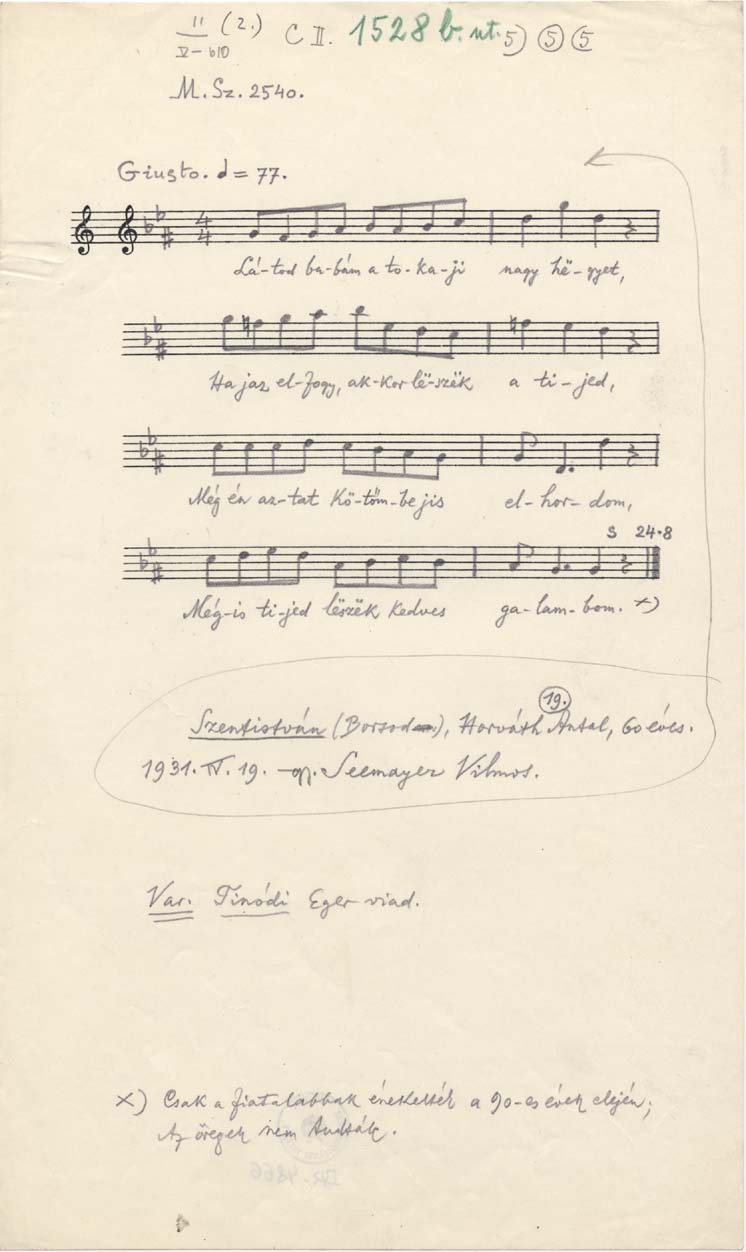 II (2.) C II. 1528 b. ut. 5) 5 5
V-610
M. Sz. 2540.
Giusto. = 77.
4
4
Lá-tod ba-bám a to-ka-ji nagy hë-gyet,
Ha jaz el-fogy, ak-kor lë-szëk a ti-jed,
Még én az-tat kö-töm-be jis el-hor-dom,
S 24.8
Még-is ti-jed lëszëk kedves ga-lam-bom. x)
19.
Szentistván (Borsod), Horváth Antal, 60 éves.
1931. IV. 19. gy. Seemayer Vilmos.
Var. Tinódi Eger viad.
x) Csak a fiatalabbak énekelték a 90-es évek elején;
Az öregek nem tudták.